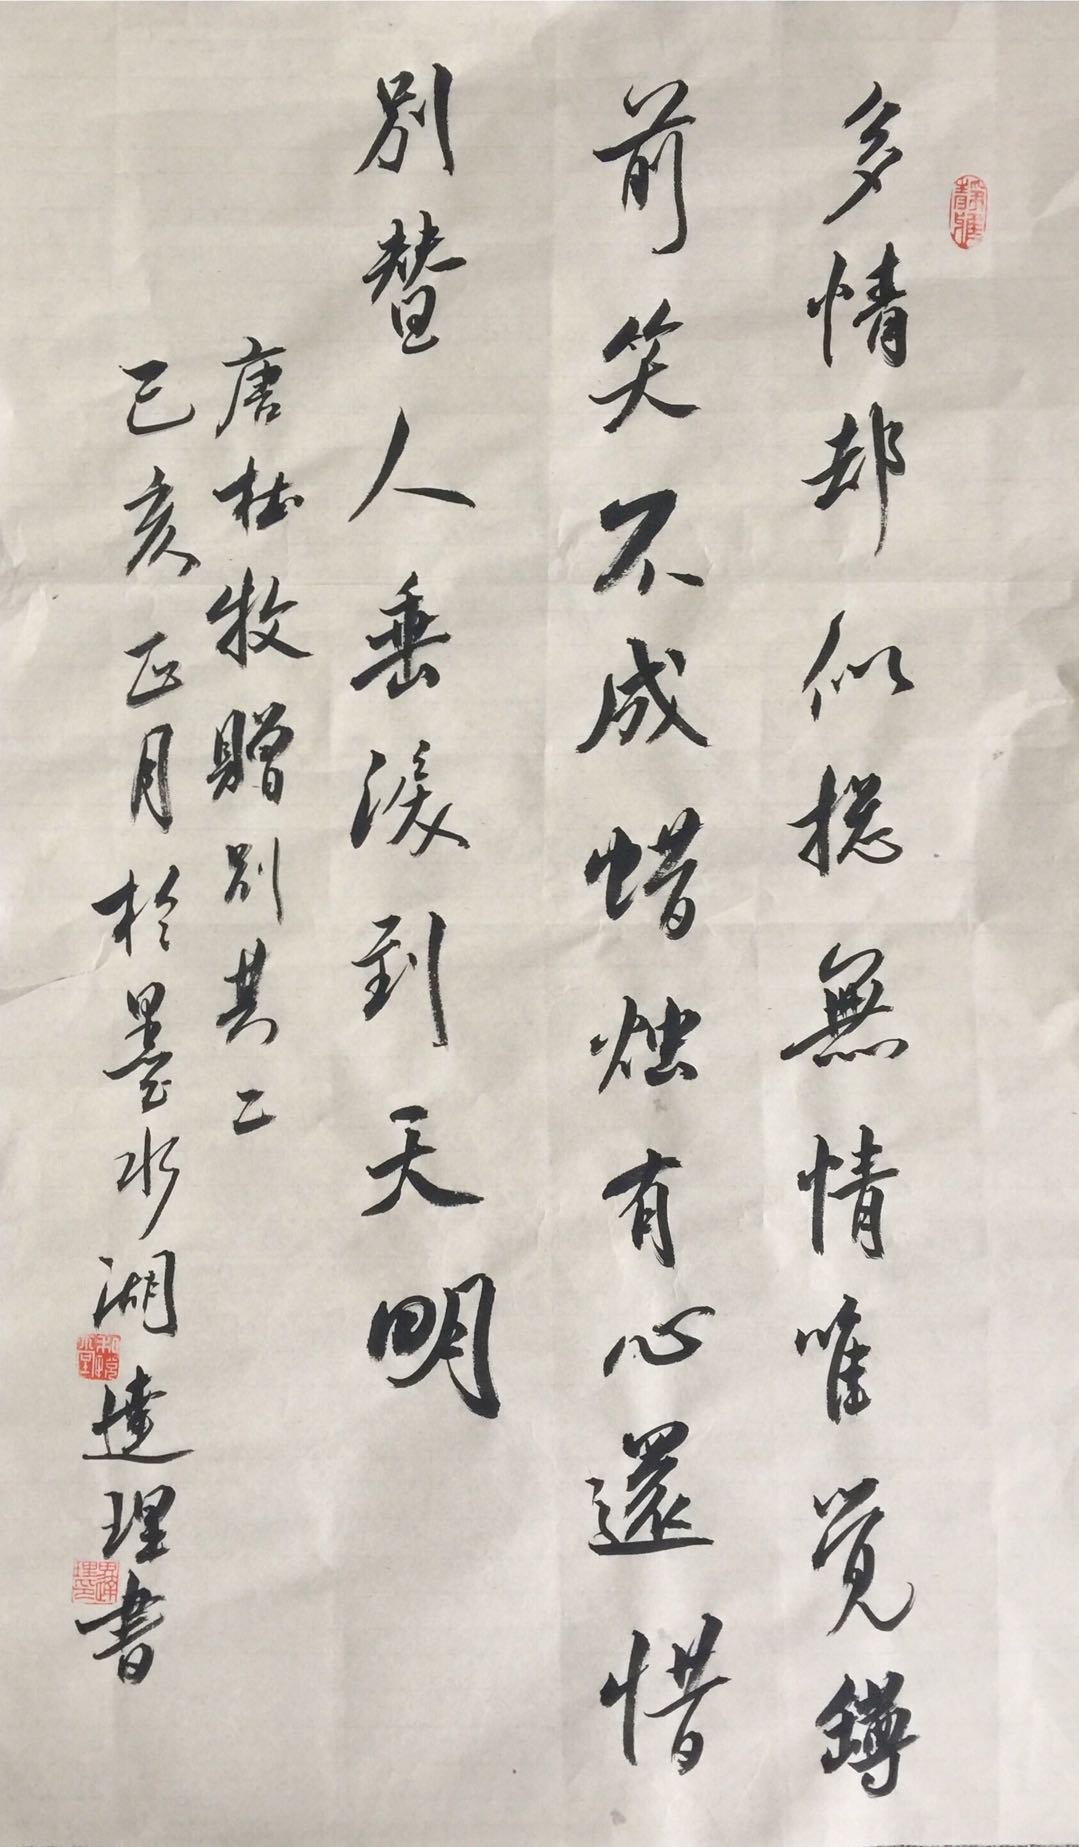 多情却似揔無情唯覺鐏
前笑不成蜡烛有心還惜
別替人垂淚到天明
唐杜牧贈別其二
己亥正月於墨水湖達理書